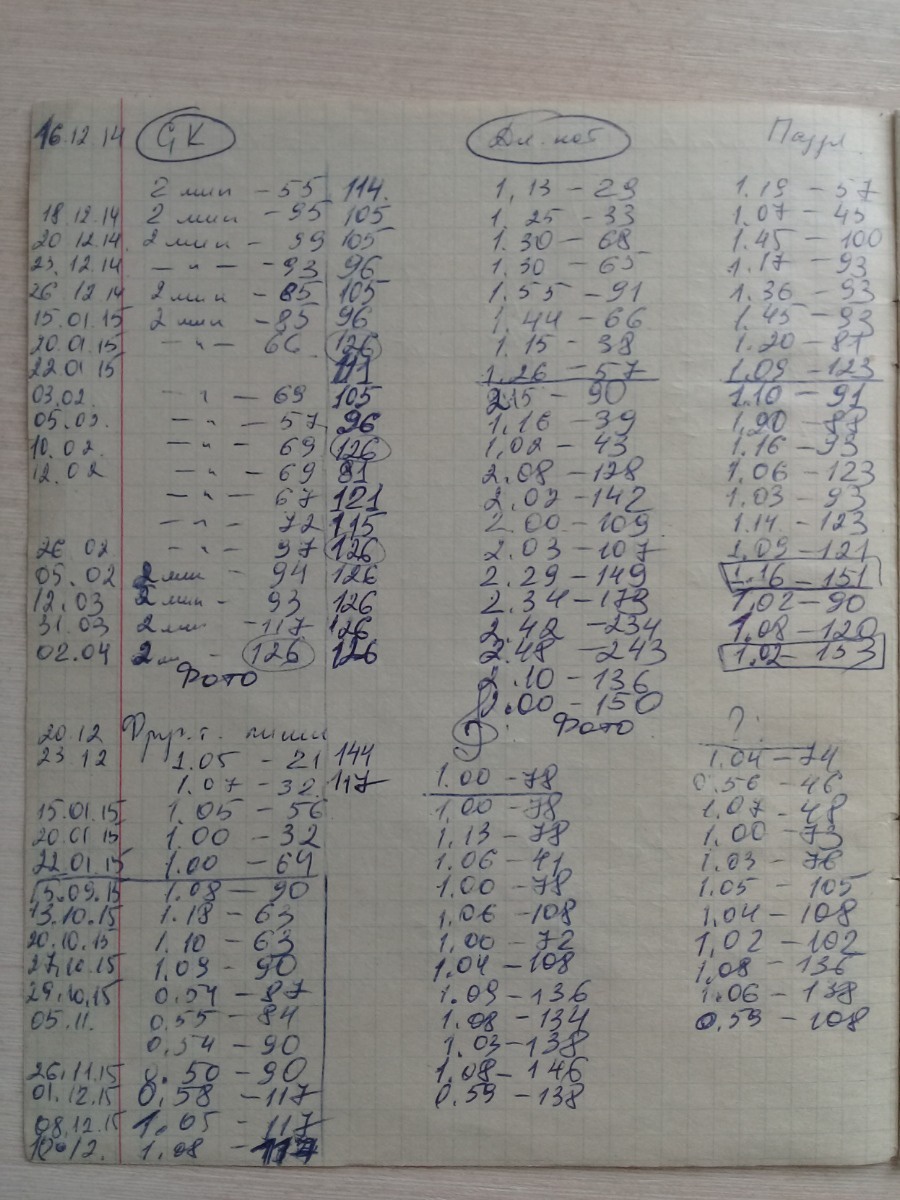 16.12.14 СК Дл. кот Пазл
2 мин - 55 114 1.13 - 29 1.19 - 57
18.12.14 2 мин - 95 105 1.25 - 33 1.07 - 45
20.12.14 2 мин - 99 105 1.30 - 68 1.45 - 100
23.12.14 - " - - 93 96 1.30 - 65 1.17 - 93
26.12.14 2 мин - 85 105 1.55 - 91 1.36 - 93
15.01.15 2 мин - 85 96 1.44 - 66 1.45 - 93
20.01.15 - " - 66 126 1.15 - 38 1.20 - 81
22.01.15 111 1.26 - 57 1.09 - 123
03.02. - " - 69 105 2.15 - 90 1.10 - 91
05.03. - " - 57 96 1.16 - 39 1.20 - 88
10.02. - " - 69 126 1.02 - 43 1.16 - 93
12.02 - " - 69 81 2.08 - 128 1.06 - 123
- " - 67 121 2.02 - 142 1.03 - 93
- " - 72 115 2.00 - 109 1.14 - 123
26.02 - " - 97 126 2.03 - 107 1.09 - 121
05.02 2 мин - 94 126 2.29 - 149 1.16 - 151
12.03 2 мин - 93 126 2.34 - 179 1.02 - 90
31.03 2 мин - 117 126 2.42 - 234 1.08 - 120
02.04 2 м - 126 126 2.48 - 243 1.02 - 153
Фото 2.10 - 136
2.00 - 150
20.12 ? : Фото ? :
23 12 1.05 - 21 144 1.04 - 74
1.07 - 32 117 1.00 - 78 0.56 - 46
15.01.15 1.05 - 56 1.00 - 78 1.07 - 48
20.01.15 1.00 - 32 1.13 - 78 1.00 - 73
22.01.15 1.00 - 64 1.06 - 41 1.03 - 76
15.09.15 1.08 - 90 1.00 - 78 1.05 - 105
13.10.15 1.18 - 63 1.06 - 108 1.04 - 108
20.10.15 1.10 - 63 1.00 - 72 1.02 - 102
27.10.15 1.09 - 90 1.04 - 108 1.08 - 136
29.10.15 0.54 - 87 1.09 - 136 1.06 - 138
05.11. 0.55 - 84 1.08 - 134 0.59 - 108
0.54 - 90 1.03 - 138
26.11.15 0.50 - 90 1.08 - 146
01.12.15 0.58 - 117 0.59 - 138
08.12.15 1.05 - 117
10.12. 1.08 - 117